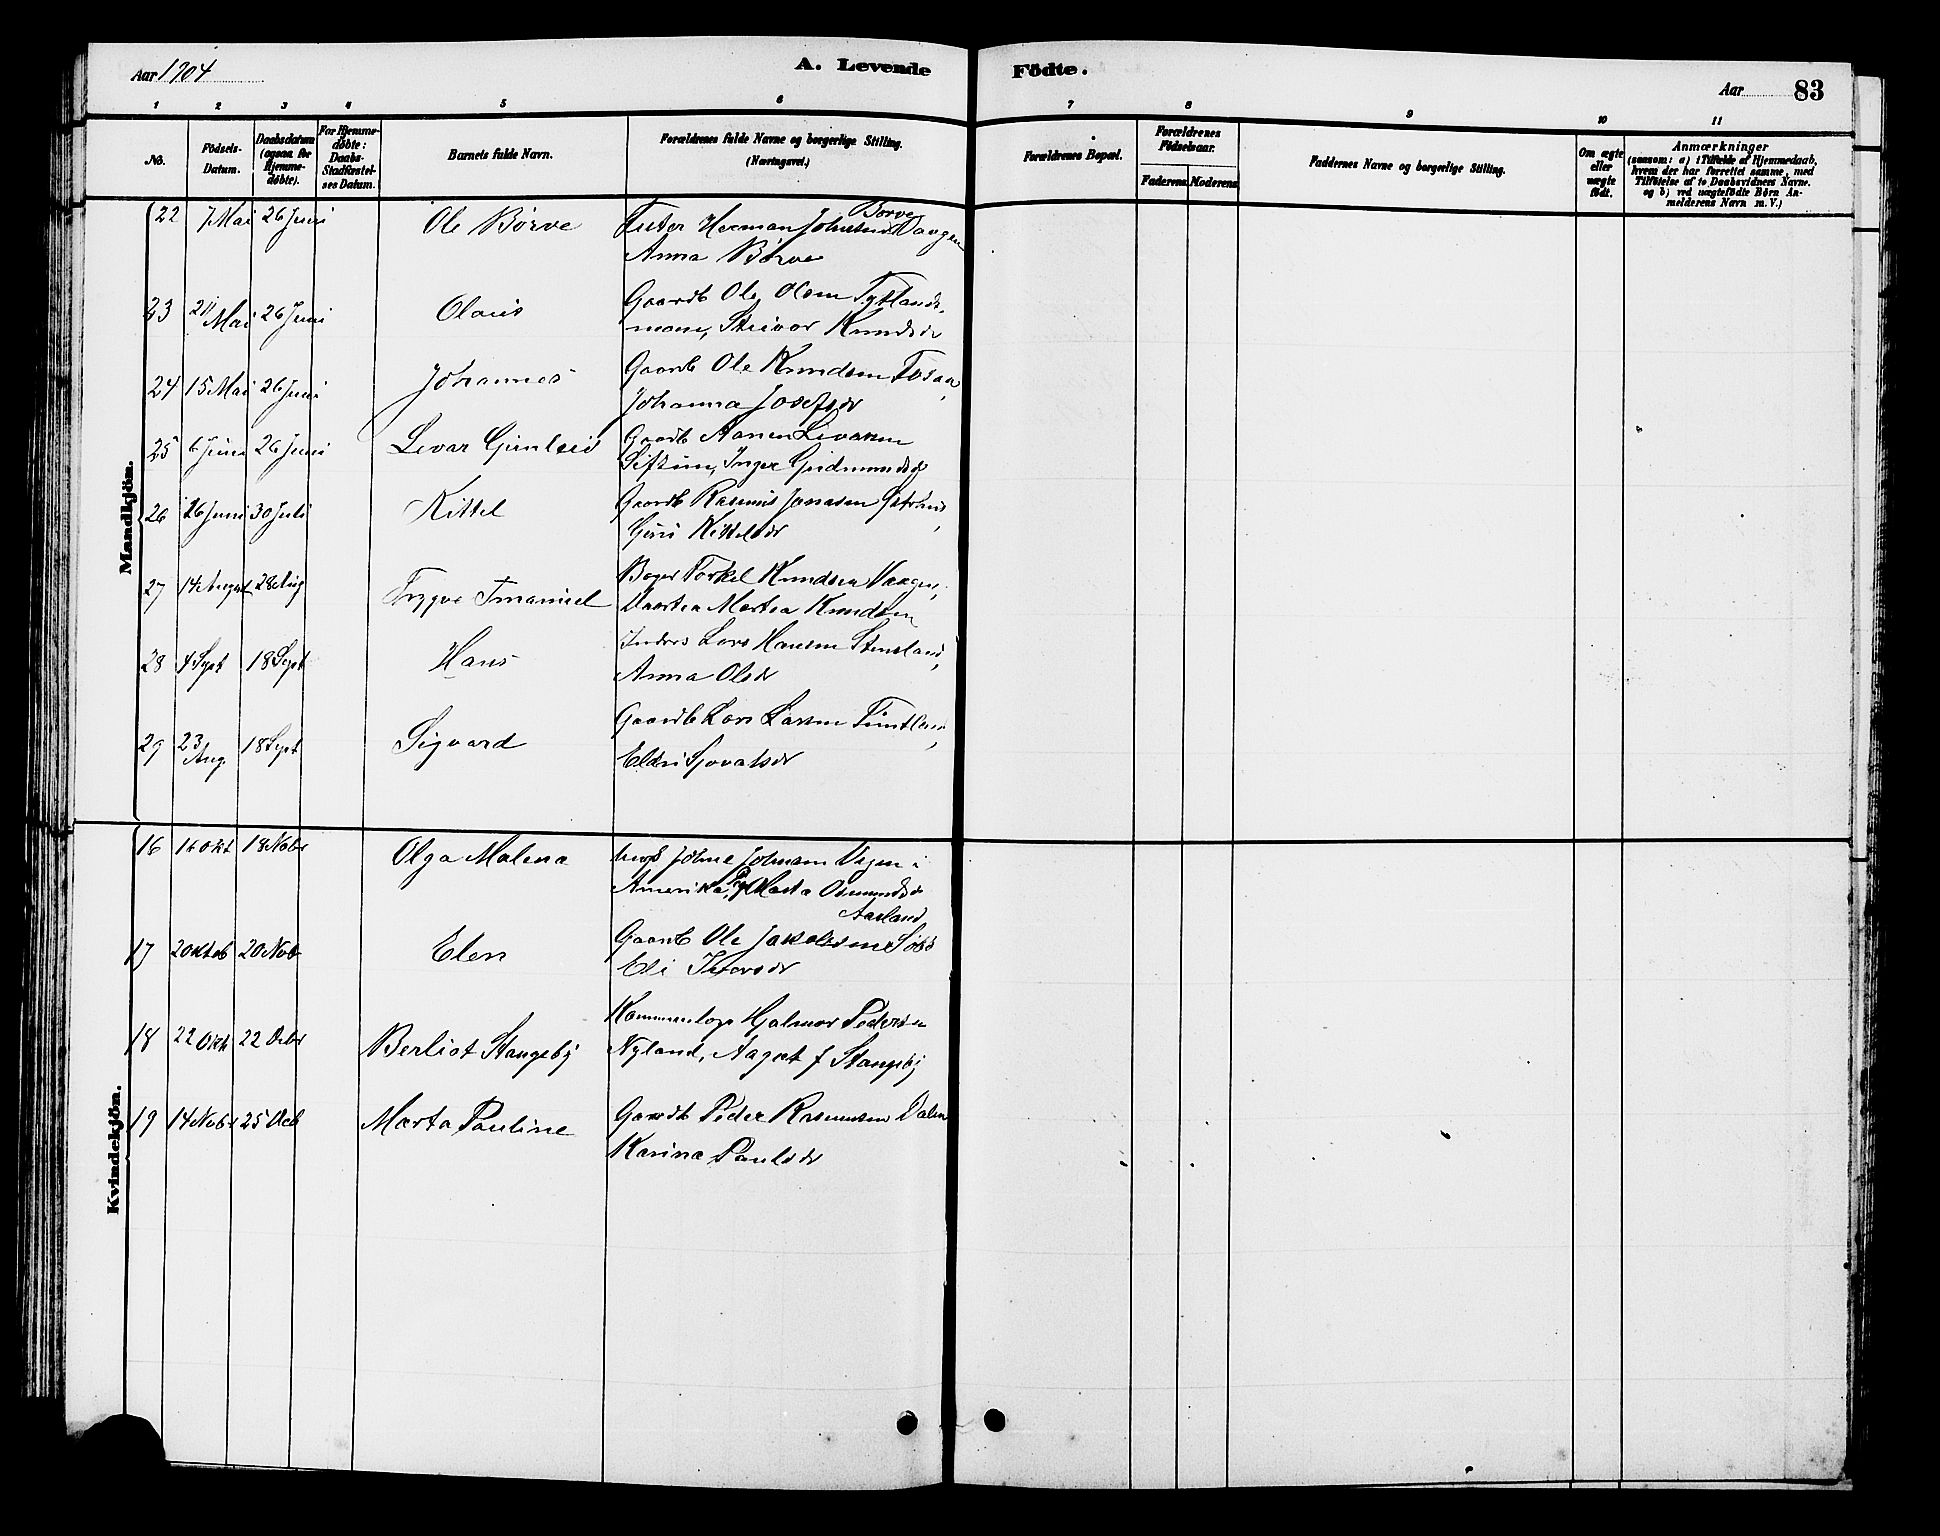 Aar 1904
A. Levende Födte.
Aar 83
1 2 3 4 5 6 7 8 9 10 11
No.
Födsels-Datum.
Daabsdatum (ogsaa for Hjemme-döbte).
For Hjemme-döbte: Daabs-Stadfæstel-ses Datum.
Barnets fulde Navn.
Forældrenes fulde Navne og borgerlige Stilling. (Næringsvei.)
Forældrenes Bopæl.
Forældrenes Födselsaar.
Faderens. Moderens.
Faddernes Navne og borgerlige Stilling.
Om ægte eller uægte födt.
Anmærkninger
(saasom: a) i Tilfælde af Hjemmedaab,
hvem der har forrettet samme, med
Tilföielse af to Daabsvidners Navne.
og b) ved uægtefödte Börn An-
melderens Navn m. V.)
Mandkjön.
22 7 Mai 26 Juni Ole Börve Herman Johnsen Vaagen
Börve
Anna Börve
23 Mai 26 Juni Olaus Gaardb Ole Olsen
Knudsdr
24 15 Mai 26 Juni Johannes Gaardb Ole Knudsen
Johanna Josefsdr
25 6 Juni 26 Juni Levar Gaardb
Inger Gudmundsdr
26 26 Juni 30 Juli Kittel Gaardb Rasmus Jonassen
Guri Kittelsdr
27 14 August 28 Aug Trygve Imanuel Torkel Knudsen Vaagen,
Martea Knudsen
28 4 Sept 18 Sept Hans Lars Hansen Stensland,
Anna Olsdr
29 23 Aug. 18 Sept Sigvard Gaardb Lars Larsen
Eldri Sjovatsdr
Kvindekjön.
16 16 Okt 18 Nobr Olga Malena Johnsen i
Amerika, Pg Marta Osmundsdr
Aarland
17 2 Oktob 20 Nob Elen Gaardb Ole Jakobsen
Eli Iversdr
18 22 Okt 22 Debr Berliot Stangeby Hjalmar Pedersen
Nyland, Aagot f Stangeby
19 14 Nobr 25 Deb Marta Pauline Gaardb Peder Rasmussen Dalen
Karina Paulsdr